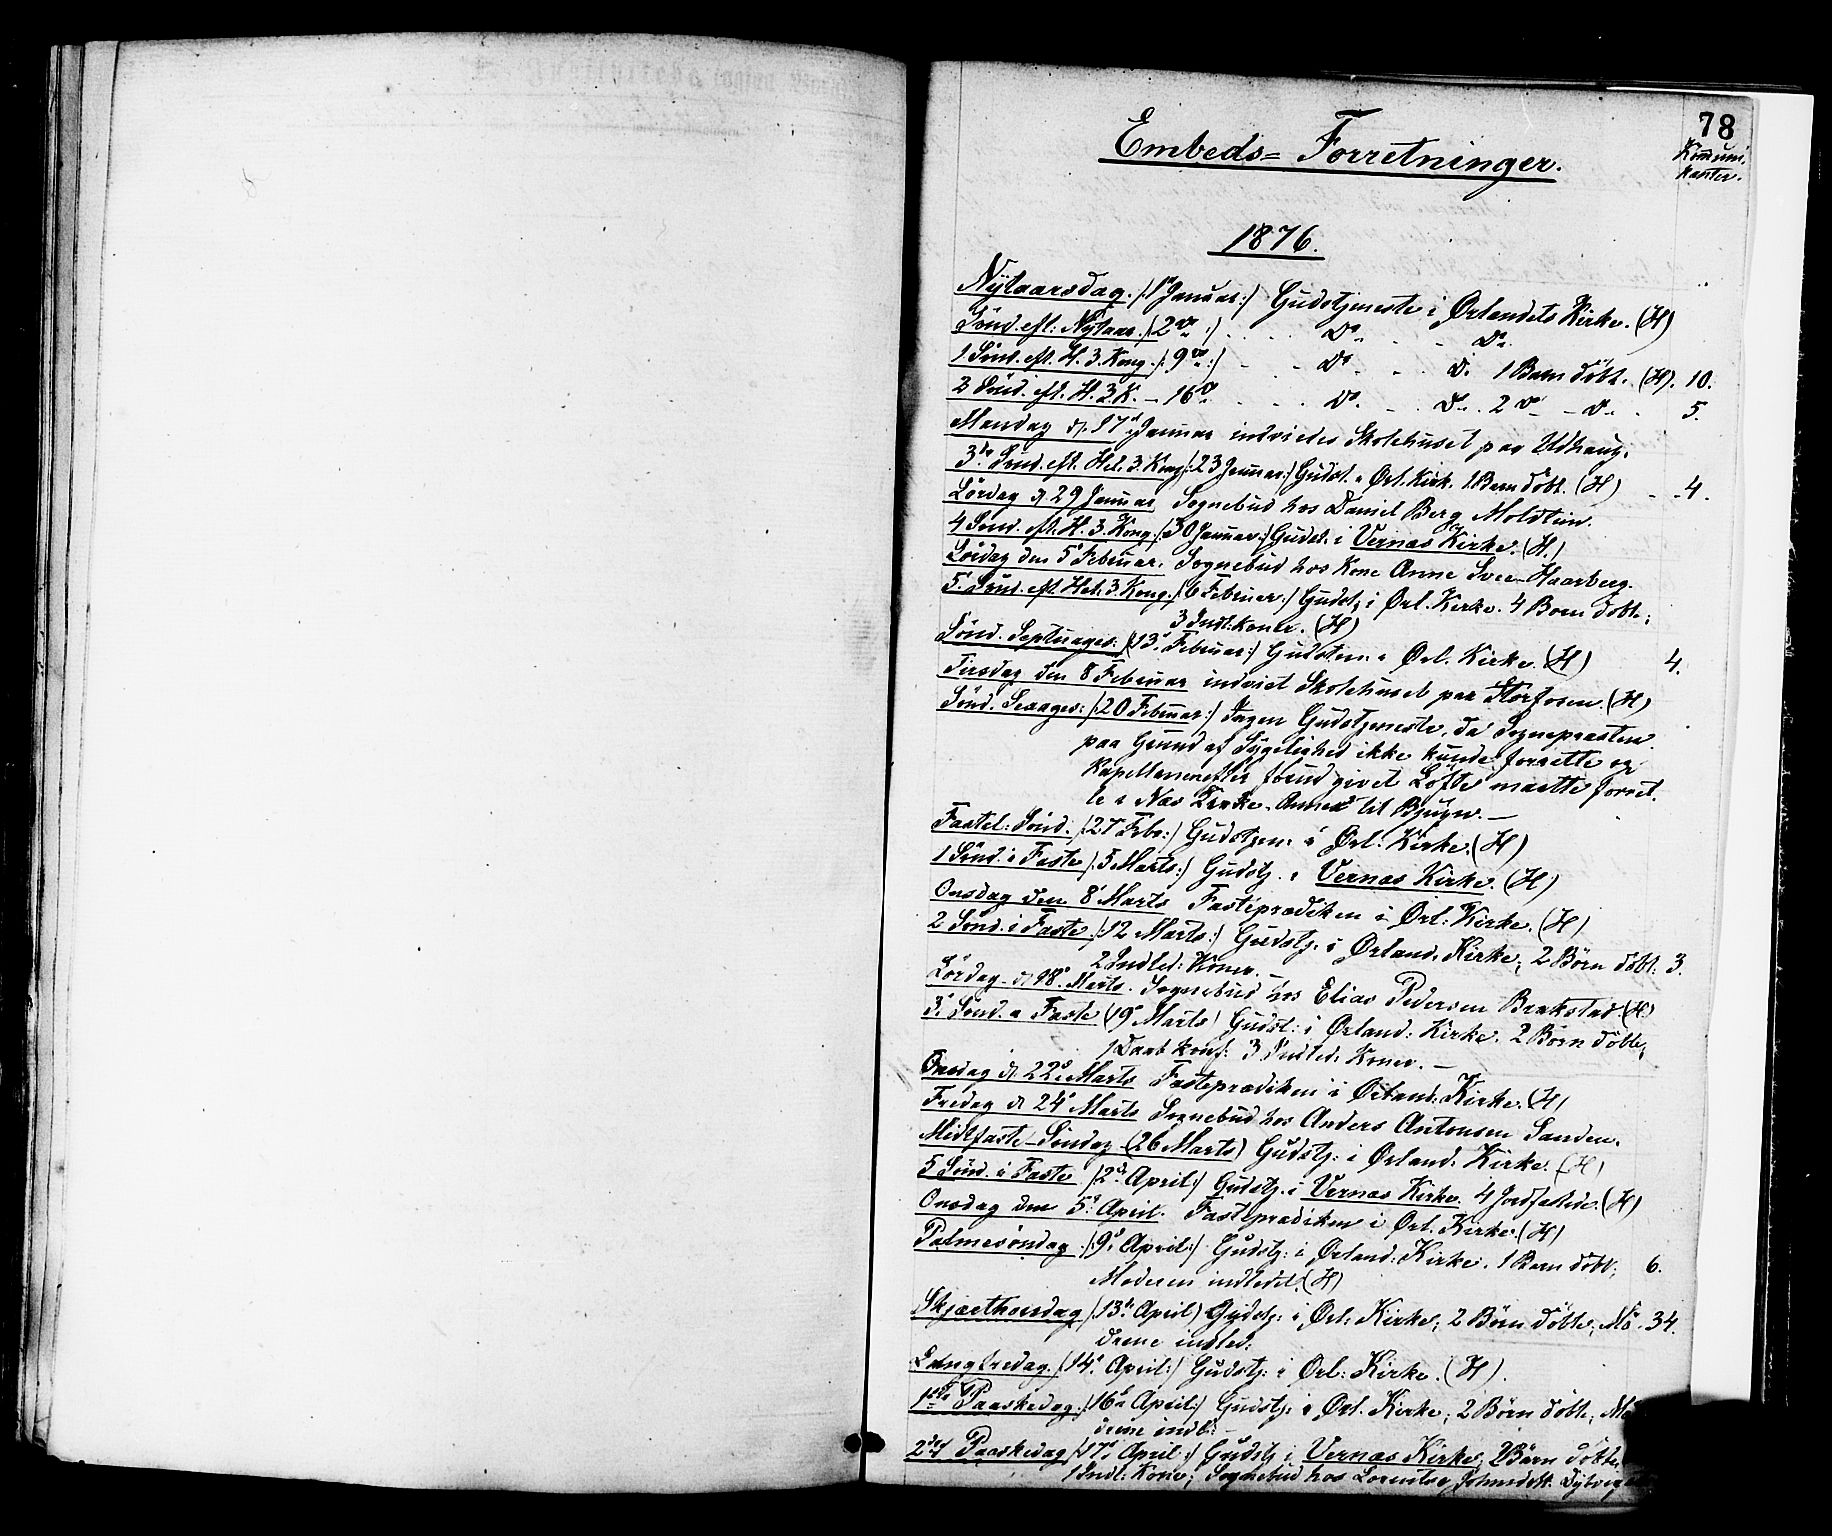 78
Embeds= Forretninger.
Kommuni-
kanter.
1876.
Nytaarsdag. /: 1ste Januar :/ Gudstjeneste i Ørlandets Kirke. (H)
Sönd. eft: Nytaar. /: 2 do :/ . . . . Do. . . . do.
1 Sönd. eft. H. 3 Kong. /: 9 do :/ - - Do. - - - d. 1 Barn döbt. (H). 10.
2 Sönd. eft. H. 3 K. - 16 do . . . Do. - . . Do. . 2 Do - - d. . 5.
Mandag d. 17 Januar indviedes Skolehuset paa Udhaug.
3die Sönd. eft. Hel. 3 Kong /: 23 Januar :/ Gudst. i Ørl. Kirk. 1 Barn döbt. (H) - - 4.
Lördag d. 29 Januar Sognebud hos Daniel Berg Moldtun.
4 Sönd. eft. H. 3. Kong. /: 30 Januar :/ Gudst. i Vernæs Kirke. (H.)
Lördag den 5 Februar. Sognebud hos Kone Anne Svee - Haarberg.
5. Sönd. eft. Hel. 3. Kong. /: 6 Februar :/ Gudstj. i Ørl. Kirke. 4 Born döbte;
3 Indl: Koner. (H)
Sönd. Septuages: /: 13. Februar :/ Gudstjen. i Ørl. Kirke. (H) 4.
Tirsdag den 8 Februar indviet Skolehuset paa Storfosen. (H)
Sönd. Sexages: /: 20 Februar :/ Ingen Gudstjeneste, da Sognepræsten
paa Grund af Sygelighed ikke kunde forrette og
Kapellanen efter forud givet Löfte maatte forret-
te i Næs Kirke - Annex til Bjugn. -
Fastel: Sönd. /: 27 Febr :/ Gudstjen. i Ørl. Kirke. (H)
1 Sönd. i Faste /: 5 Marts :/ Gudstj. i Vernæs Kirke. (H)
Onsdag den 8 Marts Fasteprædiken i Ørl: Kirke. (H)
2 Sönd. i Faste. /: 12 Marts :/ Gudstj. i Ørland. Kirke; 2 Börn döbt. 3.
2 Indled: Koner. -
Lördag d. 18. Marts. Sognebud hos Elias Pedersen Brækstad. (H)
3. Sönd. i Faste (19 Marts) Gudst: i Ørland: Kirke. 2 Börn döbte;
1 Daab konf: 3 Indled: Koner. -
Onsdag d. 22. Marts Fasteprædiken i Ørland: Kirke. (H)
Fredag d 24 Marts Sognebud hos Anders Antonsen Sanden.
Midtfaste-Söndag (26 Marts) Gudstj: i Ørland: Kirke. (H)
5 Sönd. i Faste /: 2 April :/ Gudstj. i Vernæs Kirke. 4 Jordfæstede. (H)
Onsdag den 5. April. Fasteprædiken i Ørl. Kirke. (H)
Palmesöndag. /: 9. April :/ Gudstj: i Ørland: Kirke. 1 Barn döbt; 6.
Moderen indledet. (H)
Skjærthorsdag /: 13. April) Gudstj: i Ørl: Kirke; 2 Börn döbte; Mö- 34.
drene indled:
Langfredag. /: 14. April :/ Gudstj: i Ørl: Kirke. (H).
1ste Paaskedag. /: 16. April :/ Gudstj: i Ørl. Kirke; 2 Börn döbte; Mö
drene indl: -
2den Paaskedag /: 17. April :/ Gudstj i Vernæs Kirke; 2 Börn döbte.
1 Indl: Kone; Sognebud hos Lorentse Johnsdatt. Dybvig